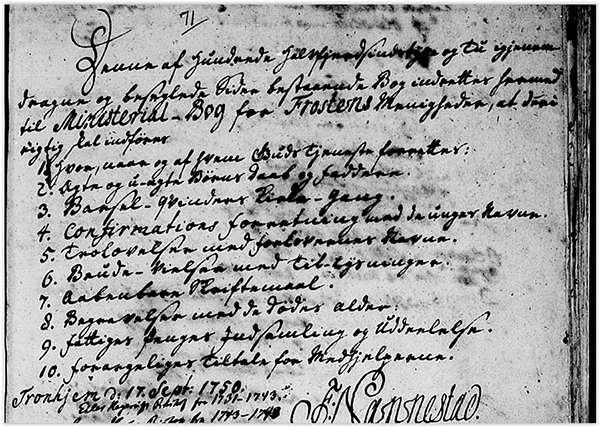 71
Denne af Hundrede Halvfierdsindstyve og Tu igjenem
dragne og beseglede Sider bestaaende Bog indrettes hermed
til Ministerial-Bog for Frostens Menigheder, at deri
rigtig skal indføres
1. Hvor, naar og af hvem Guds Tjeneste forrettes;
2. Ægte og u-ægte Børns Daab og faddere.
3. Barsel-Qvinders Kirke-Gang.
4. Confirmations forretning med de unges Navne.
5. Trolovelser med forlovernes Navne.
6. Brude-Vielser med Til-Lysninger.
7. Aabenbare Skriftemaal.
8. Begravelser med de dødes alder.
9. fattiges Penges Indsamling og Uddeelelse.
10. forargeliges Tiltale for Medhjelperne.
Tronhjem d: 17. Sept. 1750.
for 1731-1743.
for 1743-1748
F. Nannestad.